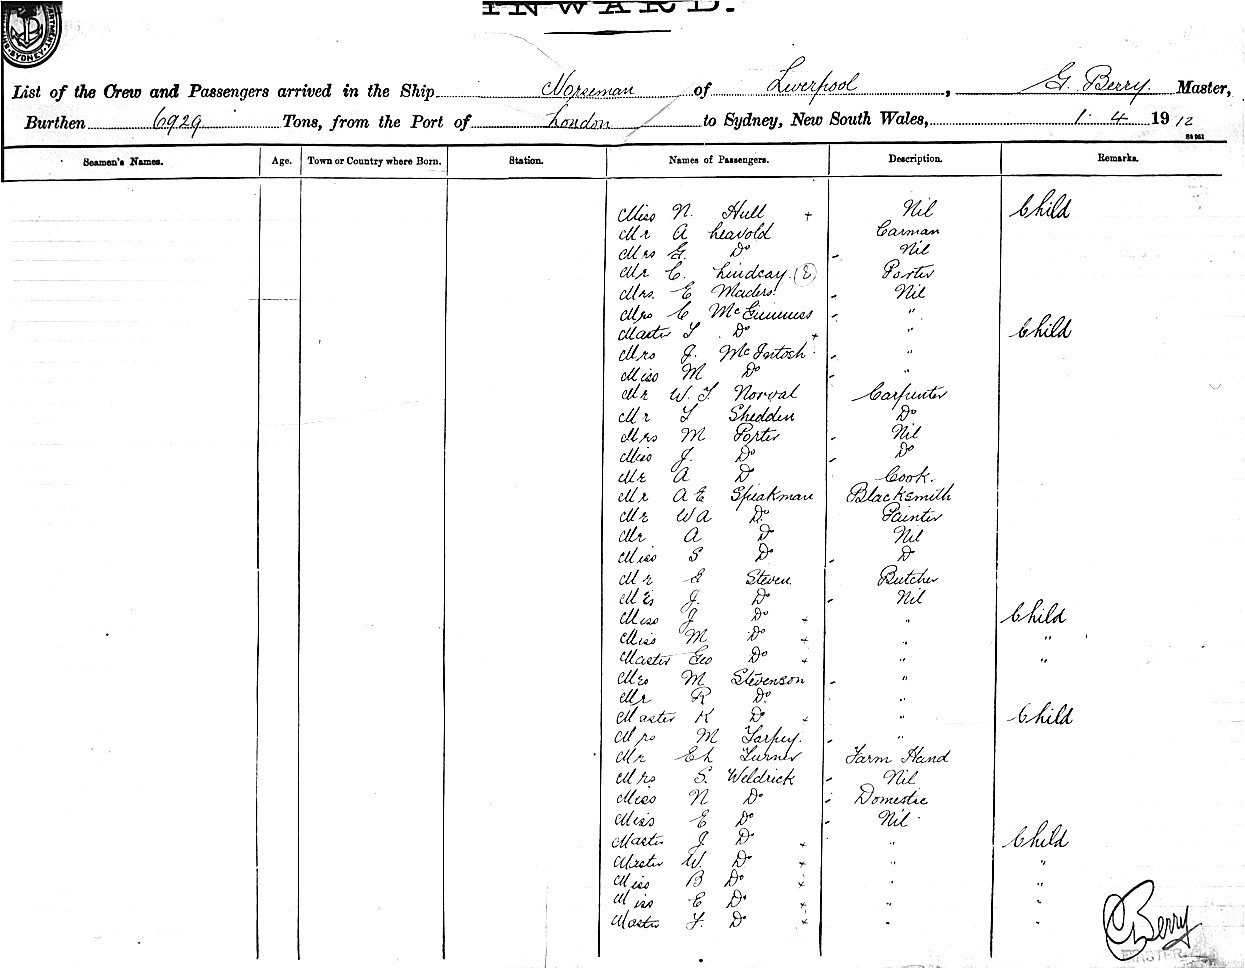 INWARD.
SYDNEY
List of the Crew and Passengers arrived in the Ship Norseman of Liverpool, G. Berry. Master,
Burthen 6929 Tons, from the Port of London to Sydney, New South Wales, 1. 4 1912
Seamen's Names. Age. Town or Country where Born. Station. Names of Passengers. Description. Remarks.
Miss N. Hull + Nil Child
Mr A Leavold Carman
Mrs G. Do Nil
Mr C. Lindsay (E) Porter
Mrs. E Maders Nil
Mrs C McGuinness "
Master T Do + " Child
Mrs J. McIntosh "
Miss M Do "
Mr W. T. Norval Carpenter
Mr T Shedden Do
Mrs M Porter Nil
Miss J. Do Do
Mr A Do Cook.
Mr A E Speakman Blacksmith
Mr W A Do Painter
Mr A Do Nil
Miss S Do D
Mr Steven Butcher
Mrs J. Do Nil
Miss J Do + " Child
Miss M Do + " "
Master Geo Do + " "
Mrs M Stevenson "
Mr R Do "
Master K Do + " Child
Mrs M Tarpey. "
Mr Ch Turner Farm Hand
Mrs S. Weldrick Nil
Miss N Do Domestic
Miss E Do Nil
Master J Do + " Child
Master W. Do + " "
Miss B Do + " "
Miss E Do + " "
Master T. Do + " "
Berry